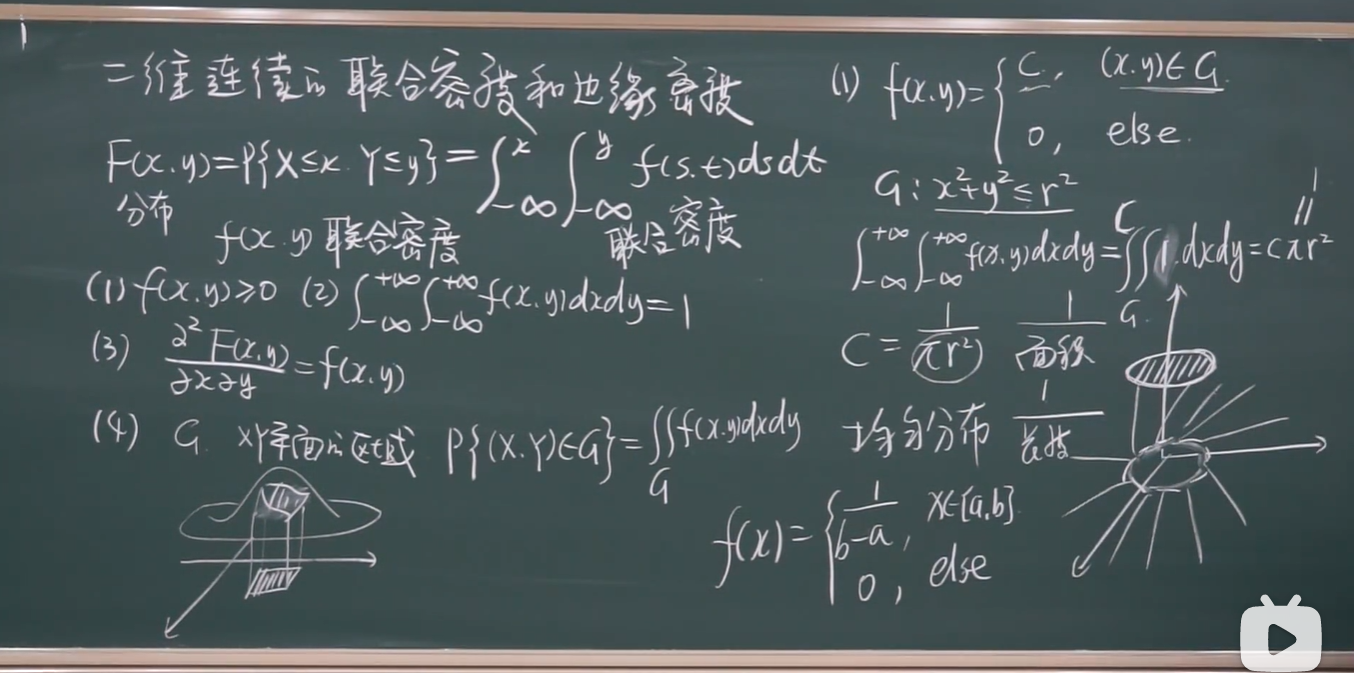 二维连续的联合密度和边缘密度
F(x.y)=P{X≤x. Y≤y}=∫_{-∞}^{x}∫_{-∞}^{y} f(s.t)dsdt
分布
f(x.y) 联合密度
联合密度
(1) f(x.y)≥0 (2) ∫_{-∞}^{+∞}∫_{-∞}^{+∞} f(x.y)dxdy=1
(3) ∂²F(x.y)/∂x∂y=f(x.y)
(4) G. XY平面的区域 P{(X.Y)∈G}=∬_G f(x.y)dxdy
(1) f(x.y)={C, (x.y)∈G.
0, else.
G: x²+y²≤r²
1
||
∫_{-∞}^{+∞}∫_{-∞}^{+∞} f(x.y)dxdy=C∬_G 1.dxdy=cπr²
C=1/πr² 1/面积
均匀分布 1/长度
f(x)={1/(b-a), x∈[a,b]
0, else